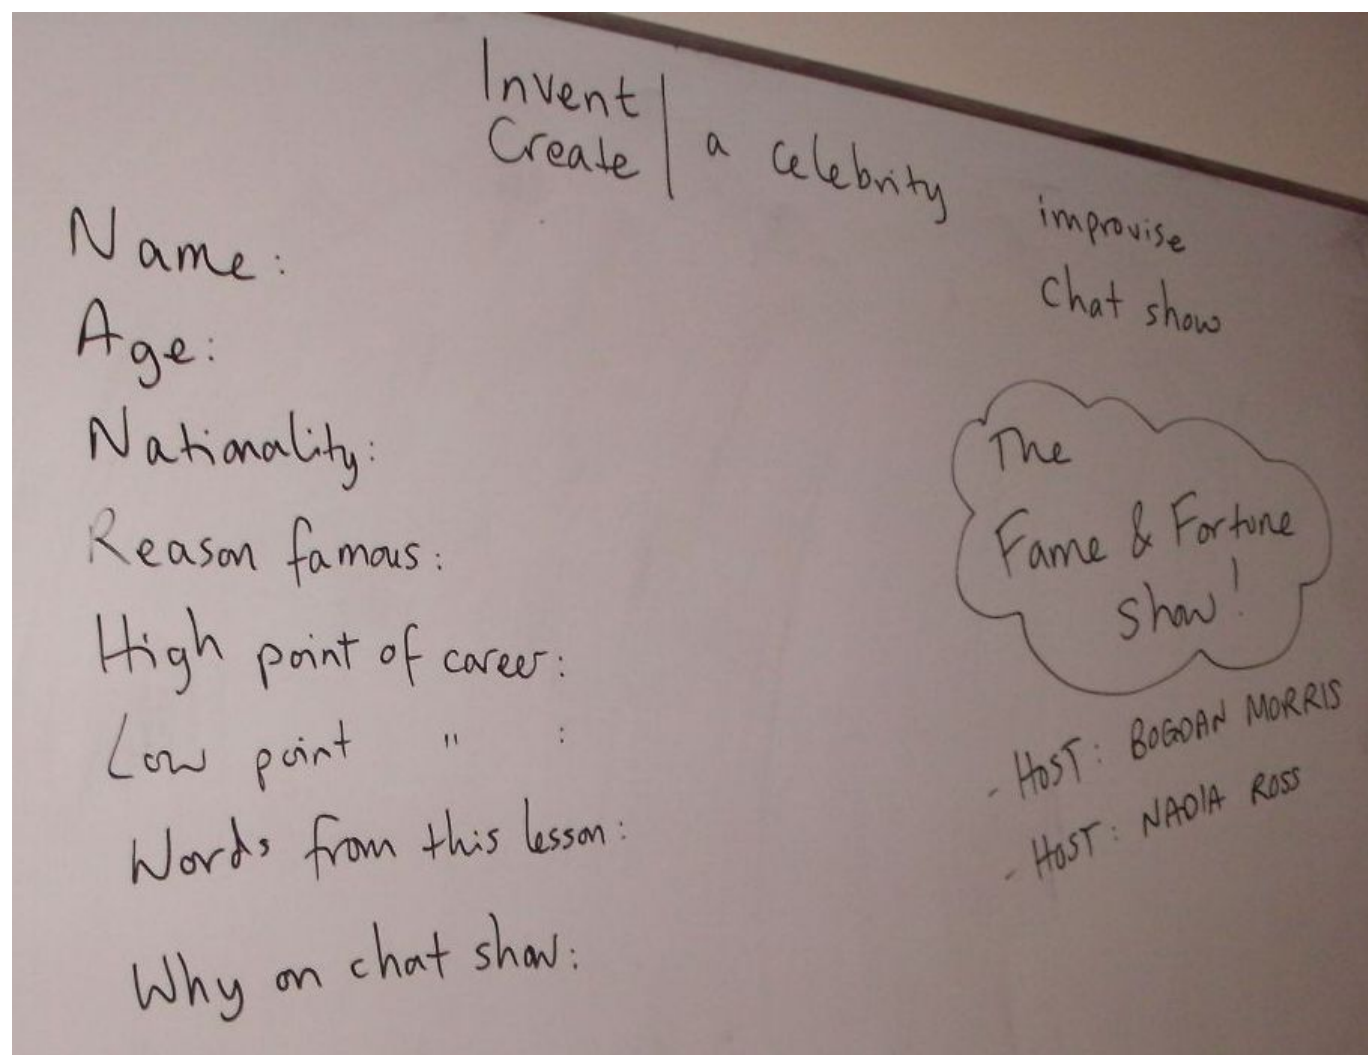 Invent
Create | a celebrity
Name:
Age:
Nationality:
Reason famous:
High point of career:
Low point " :
Words from this lesson:
Why on chat show:
improvise
Chat show
The
Fame & Fortune
show!
- HOST: BOGDAN MORRIS
- HOST: NADIA ROSS